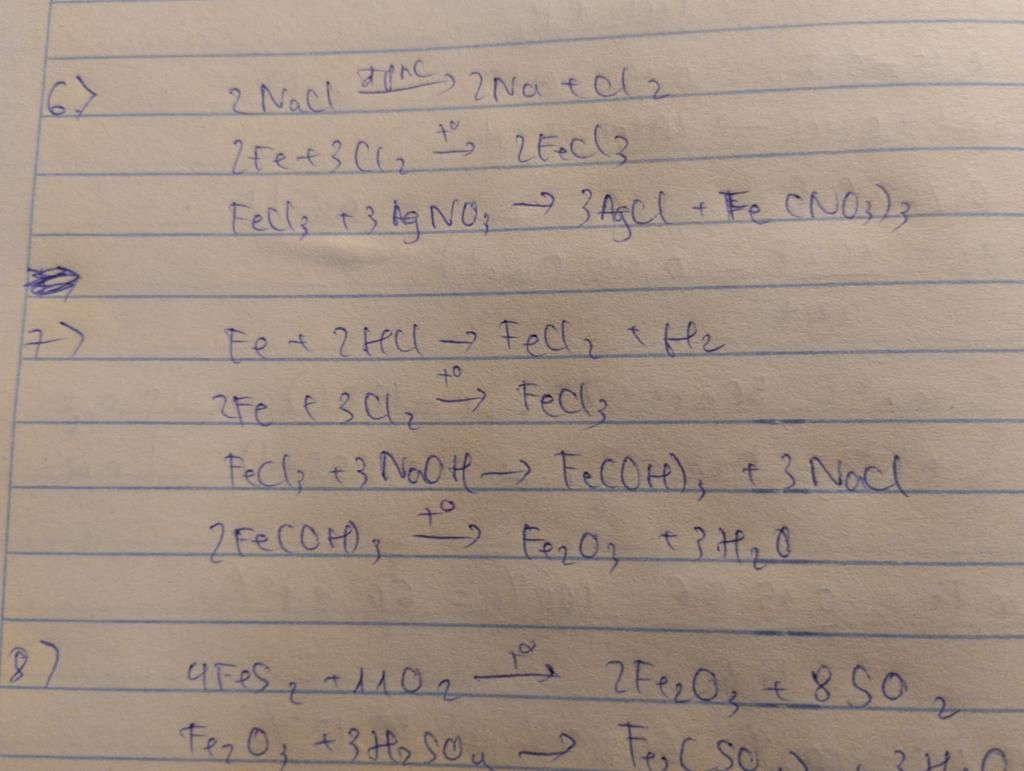 6) 2NaCl đpnc→ 2Na + Cl2
2Fe + 3Cl2 t°→ 2FeCl3
FeCl3 + 3AgNO3 → 3AgCl + Fe(NO3)3
7) Fe + 2HCl → FeCl2 + H2
2Fe + 3Cl2 t°→ FeCl3
FeCl3 + 3NaOH → Fe(OH)3 + 3NaCl
2Fe(OH)3 t°→ Fe2O3 + 3H2O
8) 4FeS2 + 11O2 t°→ 2Fe2O3 + 8SO2
Fe2O3 + 3H2SO4 → Fe2(SO4) + 3H2O